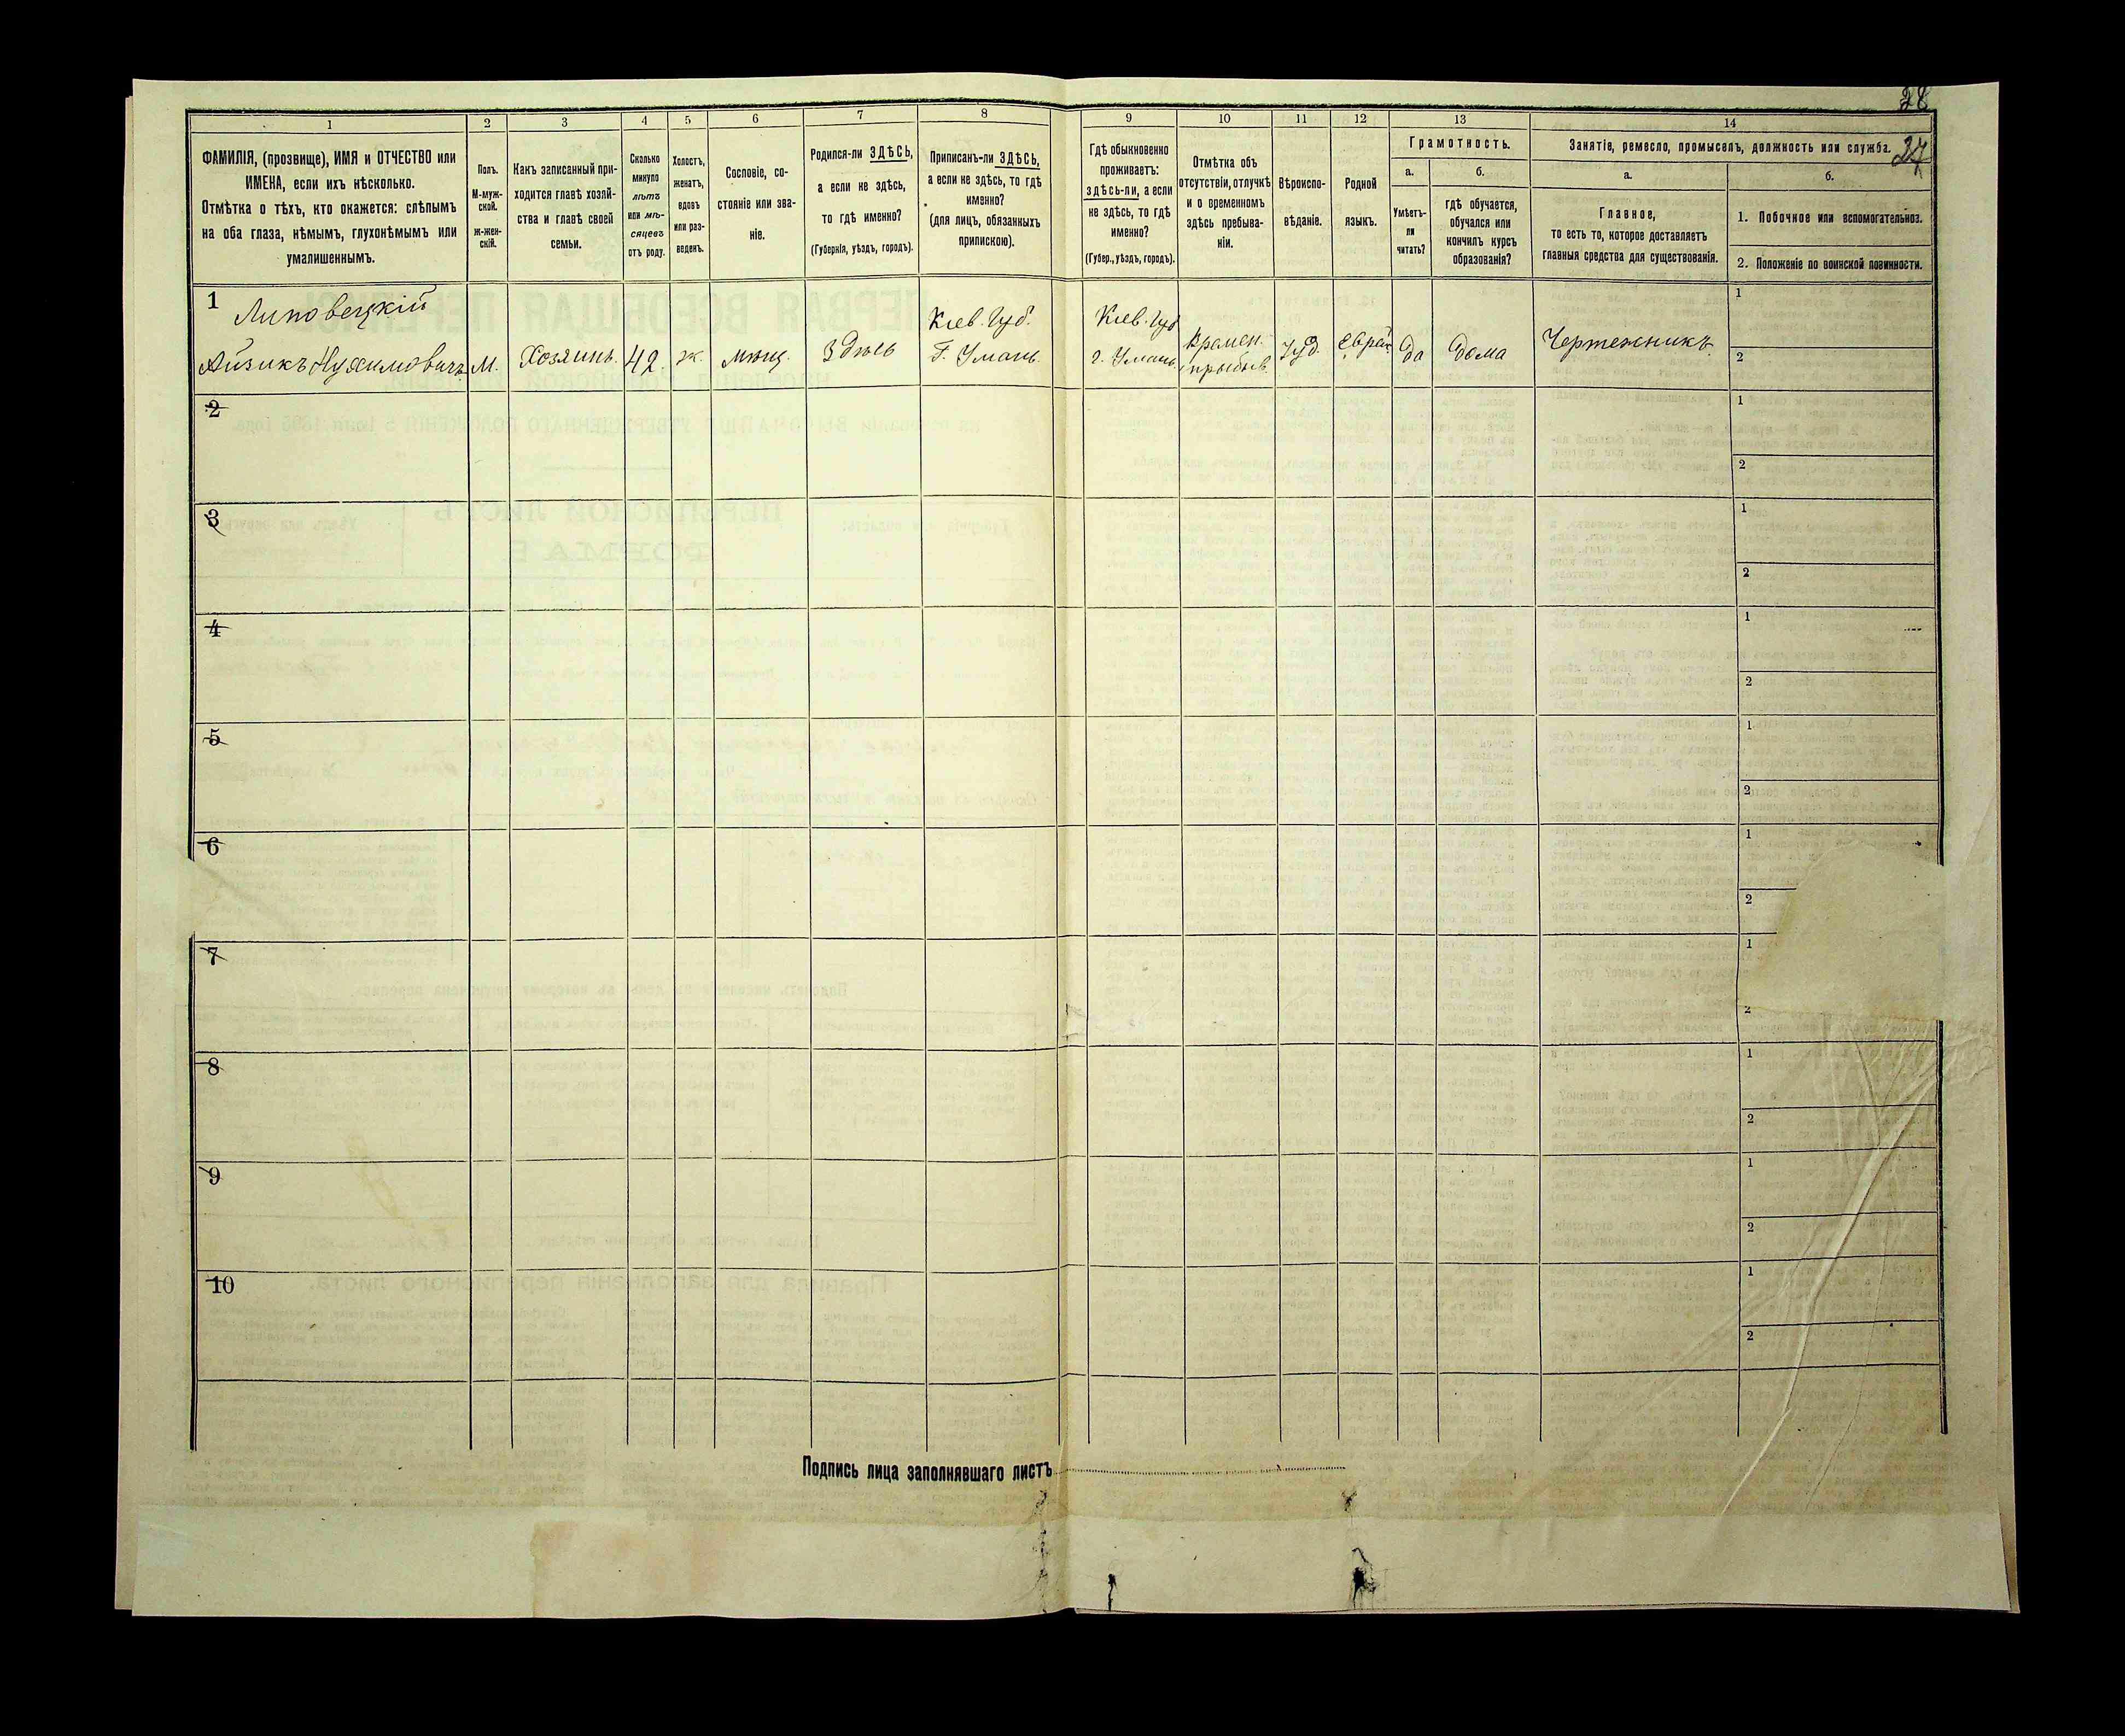 28
27
1
2
3
4
5
6
7
8
9
10
11
12
13
14
ФАМИЛІЯ, (прозвище), ИМЯ и ОТЧЕСТВО или
ИМЕНА, если ихъ нѣсколько.
Отмѣтка о тѣхъ, кто окажется: слѣпымъ
на оба глаза, нѣмымъ, глухонѣмымъ или
умалишеннымъ.
Полъ.
М-муж-
ской.
ж-жен-
скій.
Какъ записанный при-
ходится главѣ хозяй-
ства и главѣ своей
семьи.
Сколько
минуло
лѣтъ
или мѣ-
сяцевъ
отъ роду.
Холостъ,
женатъ,
вдовъ
или раз-
веденъ.
Сословіе, со-
стояніе или зва-
ніе.
Родился-ли ЗДѢСЬ,
а если не здѣсь,
то гдѣ именно?
(Губернія, уѣздъ, городъ).
Приписанъ-ли ЗДѢСЬ,
а если не здѣсь, то гдѣ
именно?
(для лицъ, обязанныхъ
припискою).
Гдѣ обыкновенно
проживаетъ:
здѣсь-ли, а если
не здѣсь, то гдѣ
именно?
(Губер., уѣздъ, городъ).
Отмѣтка объ
отсутствіи, отлучкѣ
и о временномъ
здѣсь пребыва-
ніи.
Вѣроиспо-
вѣданіе.
Родной
языкъ.
Грамотность.
а.
Умѣетъ-
ли
читать?
б.
гдѣ обучается,
обучался или
кончилъ курсъ
образованія?
Занятіе, ремесло, промыселъ, должность или служба.
а.
Главное,
то есть то, которое доставляетъ
главныя средства для существованія.
б.
1. Побочное или вспомогательное.
2. Положеніе по воинской повинности.
1
Липовецкій
Айзикъ Нухимовичъ
М.
Хозяинъ.
42.
ж.
мѣщ.
Здѣсь
Кіев. Губ.
Г. Умань.
Кіев. Губ
г. Умань
Времен.
прыбыв.
Іуд.
Еврей.
да
дома
Чертежникъ.
1
2
2
1
2
3
1
2
4
1
2
5
1
2
6
1
2
7
1
2
8
1
2
9
1
2
10
1
2
Подпись лица заполнявшаго листъ